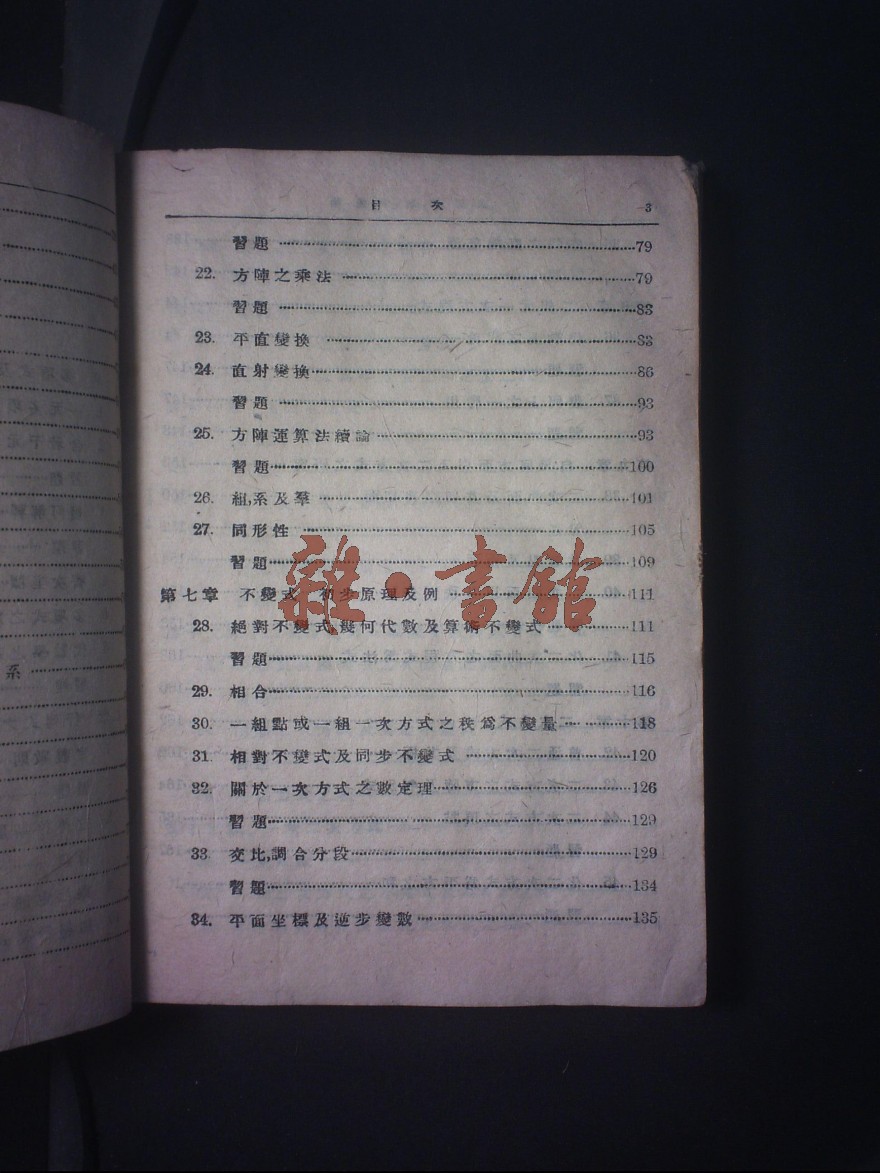 目 次 3
習題 79
22. 方陣之乘法 79
習題 83
23. 平直變換 83
24. 直射變換 86
習題 93
25. 方陣運算法續論 93
習題 100
26. 組,系及羣 101
27. 同形性 105
習題 109
第七章 不變式 初步原理及例 111
28. 絕對不變式,幾何代數及算術不變式 111
習題 115
29. 相合 116
30. 一組點或一組一次方式之秩爲不變量 118
31. 相對不變式及同步不變式 120
32. 關於一次方式之數定理 126
習題 129
33. 交比,調合分段 129
習題 134
34. 平面坐標及逆步變數 135
雜·書館
系